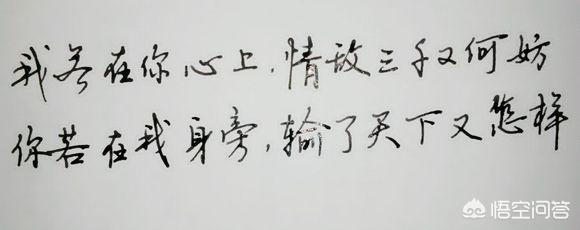 我若在你心上,情敌三千又何妨
你若在我身旁,输了天下又怎样
悟空问答